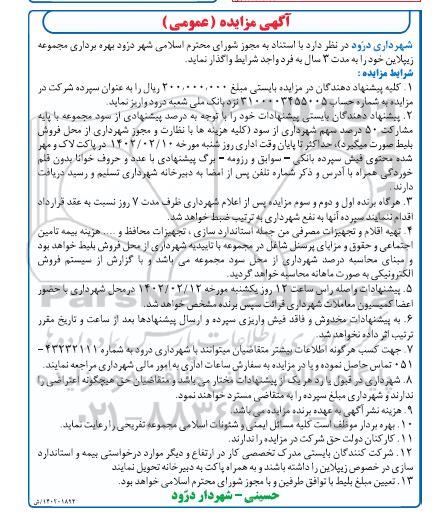 آگهی مزایده (عمومی)
شهرداری درّود در نظر دارد با استناد به مجوز شورای محترم اسلامی شهر درّود بهره برداری مجموعه
زیپلاین خود را به مدت ۳ سال به فرد واجد شرایط واگذار نماید.
شرایط مزایده :
۱. کلیه پیشنهاد دهندگان در مزایده بایستی مبلغ ۲۰۰٫۰۰۰٫۰۰۰ ریال را به عنوان سپرده شرکت در
مزایده به شماره حساب ۳۱۰۰۰۰۳۴۵۵۰۰۵ نزد بانک ملی شعبه درود واریز نماید.
۲. پیشنهاد دهندگان بایستی پیشنهادات خود را با توجه به درصد پیشنهادی از سود مجموعه با پایه
مشارکت ۵۰ درصد سهم شهرداری از سود (کلیه هزینه ها با نظارت و مجوز شهرداری از محل فروش
بلیط صورت میگیرد)، حداکثر تا پایان وقت اداری روز شنبه مورخه ۱۴۰۲/۰۲/۱۰ در پاکت لاک و مهر
شده محتوی فیش سپرده بانکی – سوابق و رزومه – برگ پیشنهادی با عدد و حروف خوانا بدون قلم
خوردگی همراه با آدرس و ذکر شماره تلفن پس از امضا به دبیرخانه شهرداری تسلیم و رسید دریافت
دارند.
۳. هرگاه برنده اول و دوم و سوم مزایده پس از اعلام شهرداری ظرف مدت ۷ روز نسبت به عقد قرارداد
اقدام ننمایند سپرده آنها به نفع شهرداری به ترتیب ضبط خواهد شد.
۴. تهیه اقلام و تجهیزات مصرفی من جمله استاندارد سازی ، تجهیزات محافظ و .... هزینه بیمه تامین
اجتماعی و حقوق و مزایای پرسنل شاغل در مجموعه با تاییدیه شهرداری از محل فروش بلیط خواهد بود
و مبنای محاسبه درصد شهرداری از محل سود مجموعه می باشد و با گزارش از سیستم فروش
الکترونیکی به صورت ماهانه محاسبه خواهد گردید.
۵. پیشنهادات واصله راس ساعت ۱۲ روز یکشنبه مورخه ۱۴۰۲/۰۲/۱۲ درمحل شهرداری با حضور
اعضا کمیسیون معاملات شهرداری قرائت سپس برنده مشخص خواهد شد.
۶. به پیشنهادات مخدوش و فاقد فیش واریزی سپرده و ارسال پیشنهادها بعد از ساعت و تاریخ مقرر
ترتیب اثر داده نخواهد شد.
۷. جهت کسب هرگونه اطلاعات بیشتر متقاضیان میتوانند با شهرداری درود به شماره ۴۳۲۳۲۱۱۱-
۰۵۱ تماس حاصل نموده و یا در مزایده به سفارش ساعات اداری به امور مالی شهرداری مراجعه نمایند.
۸. شهرداری در قبول یا رد هر یک از پیشنهادات مختار می باشد و متقاضیان حق هیچگونه اعتراضی را
ندارند و شهرداری مبلغ سپرده را به متقاضی مسترد خواهد نمود.
۹. هزینه نشر آگهی به عهده برنده مزایده می باشد.
۱۰. بهره بردار موظف است کلیه مسائل ایمنی و شئونات اسلامی مجموعه تفریحی را رعایت نماید.
۱۱. کارکنان دولت حق شرکت در مزایده را ندارند.
۱۲. شرکت کنندگان بایستی مدرک تخصصی کار در ارتفاع و دیگر موارد درخواستی بیمه و استاندارد
سازی در خصوص زیپلاین را داشته باشند و به همراه پاکت به دبیرخانه تحویل نمایند
۱۳. تعیین مبلغ بلیط با توافق طرفین و با مجوز شورای محترم اسلامی خواهد بود.
حسینی – شهردار درّود
۱۴۰۲۰۱۸۲۲/ش
۰۲۱-۸۸۳۴۹۶۷۰